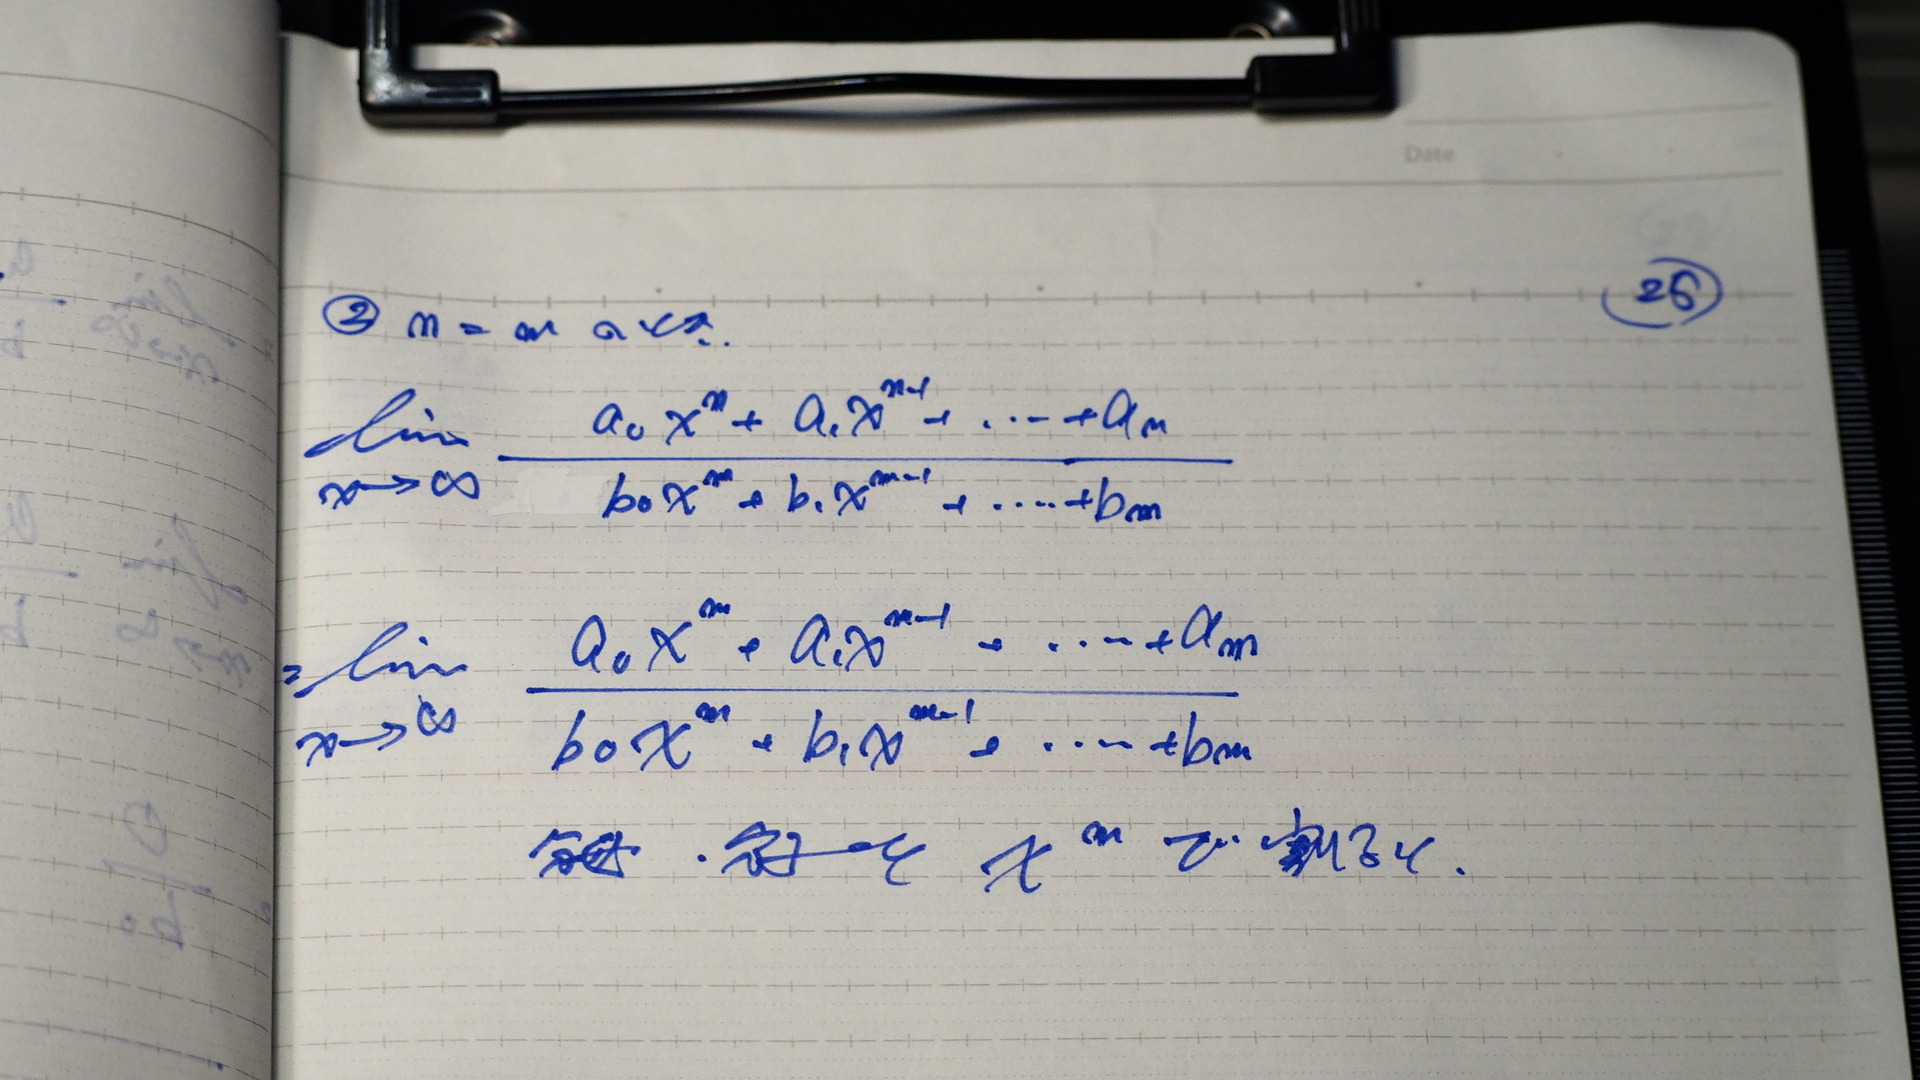 Date
26
② n = m のとき..
lim x→∞ (a₀xⁿ + a₁xⁿ⁻¹ + ..... + aₙ) / (b₀xᵐ + b₁xᵐ⁻¹ + ..... + bₘ)
= lim x→∞ (a₀xᵐ + a₁xᵐ⁻¹ + ..... + aₘ) / (b₀xᵐ + b₁xᵐ⁻¹ + ..... + bₘ)
分母・分子を xᵐ で割ると.